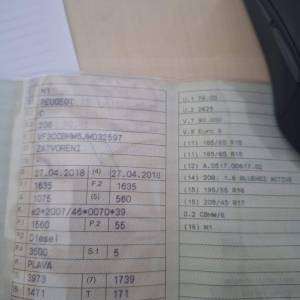 M1
PEUGEOT
C
208
ZATVORENI
27.04.2018 (4) 27.04.2018
1635 F.2 1635
1075 (5) 560
e2*2007/46*0070*39
1560 P.2 55
Diesel
3500 S.1 5
PLAVA
3973 (7) 1739
1471 T 171
U.1 76.00
U.2 2625
V.7 90.000
V.9 Euro 6
(11) 185/65 R15
(11) 185/65 R15
(14) 208, 1.6 BLUEHDI ACTIVE
(15) 195/55 R16
(15) 205/45 R17
D.2 CBHW/6
(16) M1